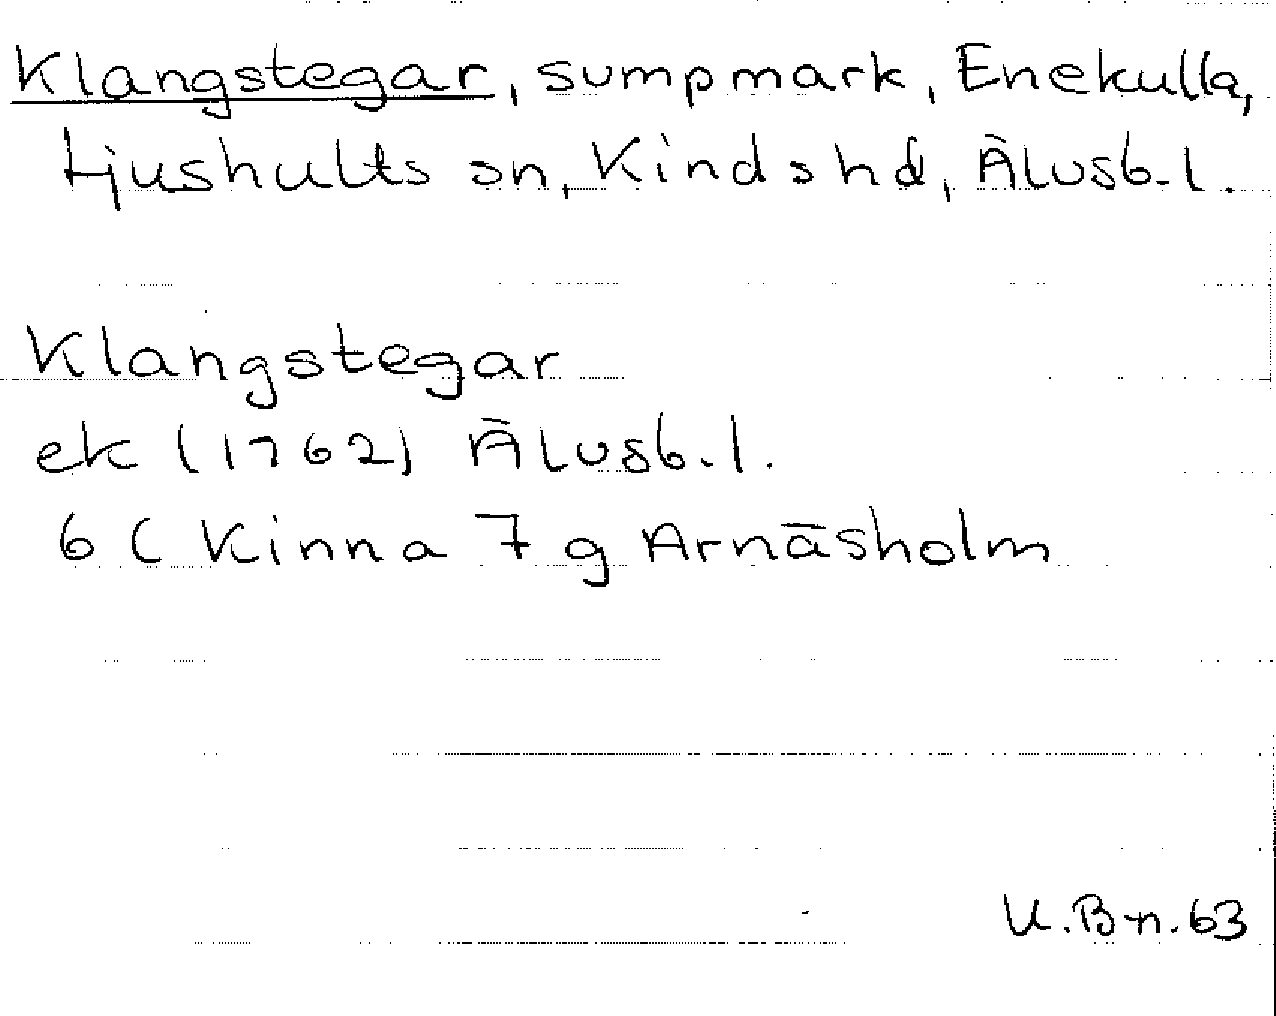 Klangstegar, sumpmark, Enekulla,
Ljushults sn, Kinds hd, Älvsb. l.
Klangstegar
ek (1762) Älvsb. l.
6 C Kinna 7 g Arnäsholm
U.Bn.63